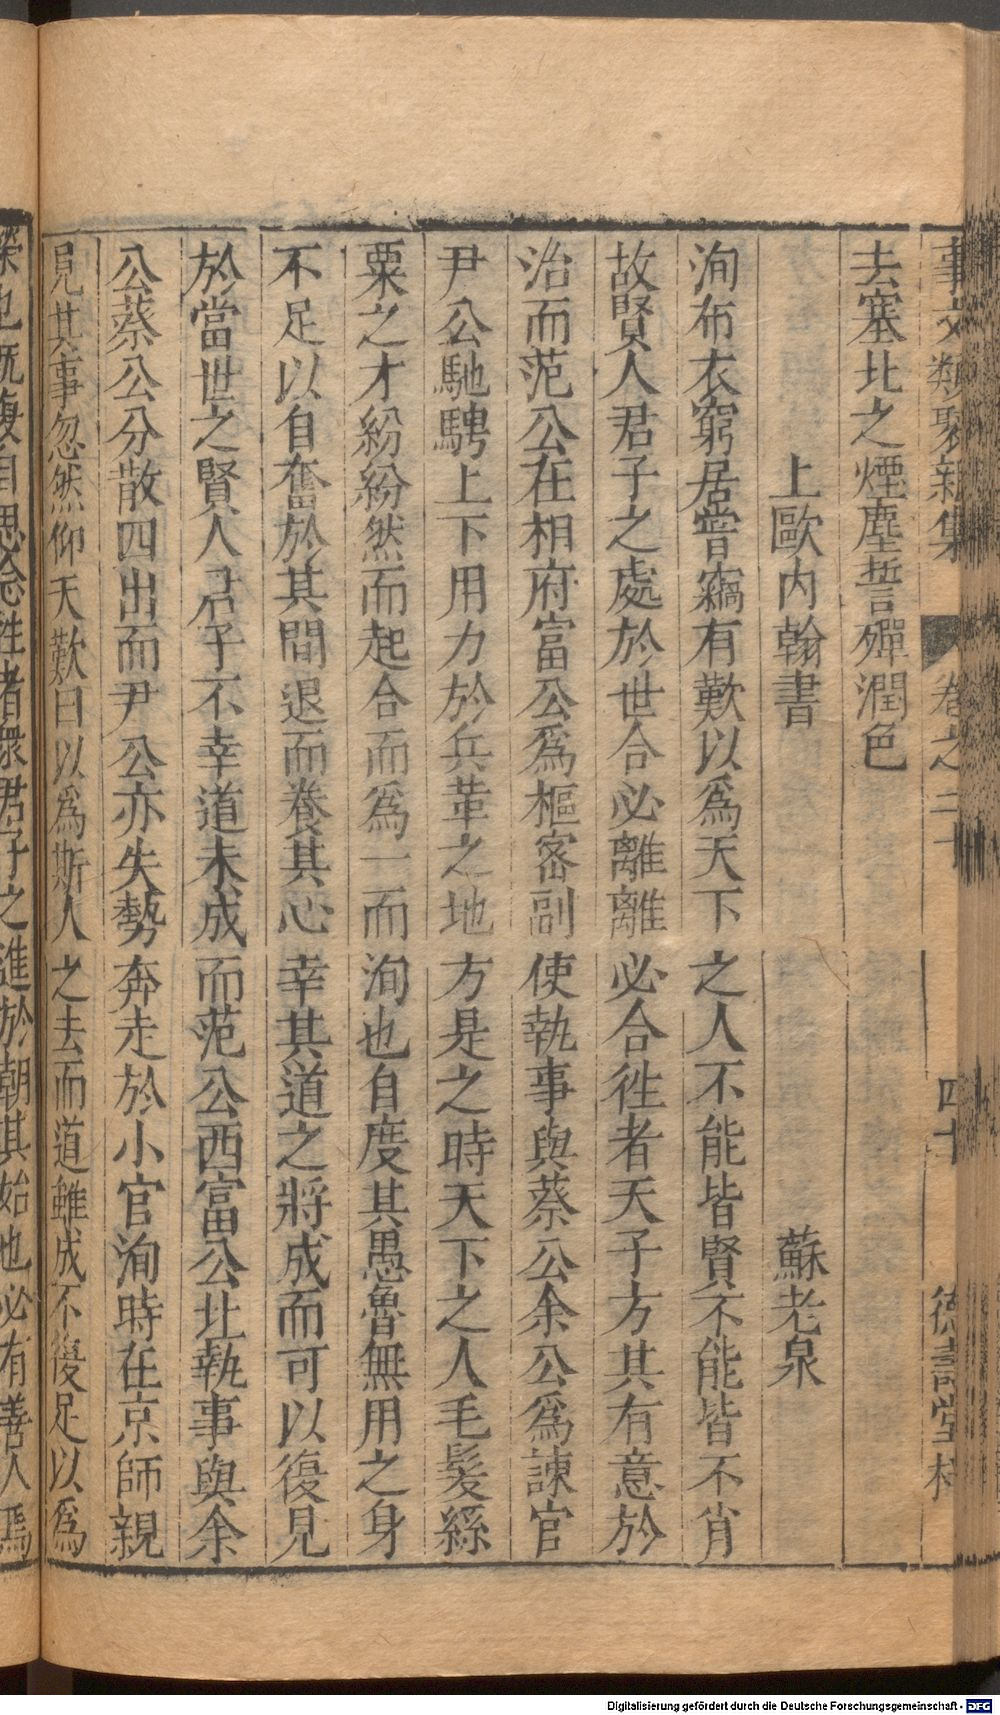 事文類聚新集 卷之二十 四十 德壽堂梓
去塞北之煙塵誓殫潤色
上歐內翰書 蘇老泉
洵布衣窮居甞竊有歎以爲天下之人不能皆賢不能皆不肖
故賢人君子之處於世合必離離必合徃者天子方其有意於
治而范公在相府富公爲樞密副使執事與蔡公余公爲諫官
尹公馳騁上下用力於兵革之地方是之時天下之人毛髮絲
粟之才紛紛然而起合而爲一而洵也自度其愚魯無用之身
不足以自奮於其間退而養其心幸其道之將成而可以復見
於當世之賢人君子不幸道未成而范公西富公北執事與余
公蔡公分散四出而尹公亦失勢奔走於小官洵時在京師親
見其事忽然仰天歎曰以爲斯人之去而道雖成不復足以爲
榮也既復自思念徃者衆君子之進於朝其始也必有善人焉
Digitalisierung gefördert durch die Deutsche Forschungsgemeinschaft - DFG